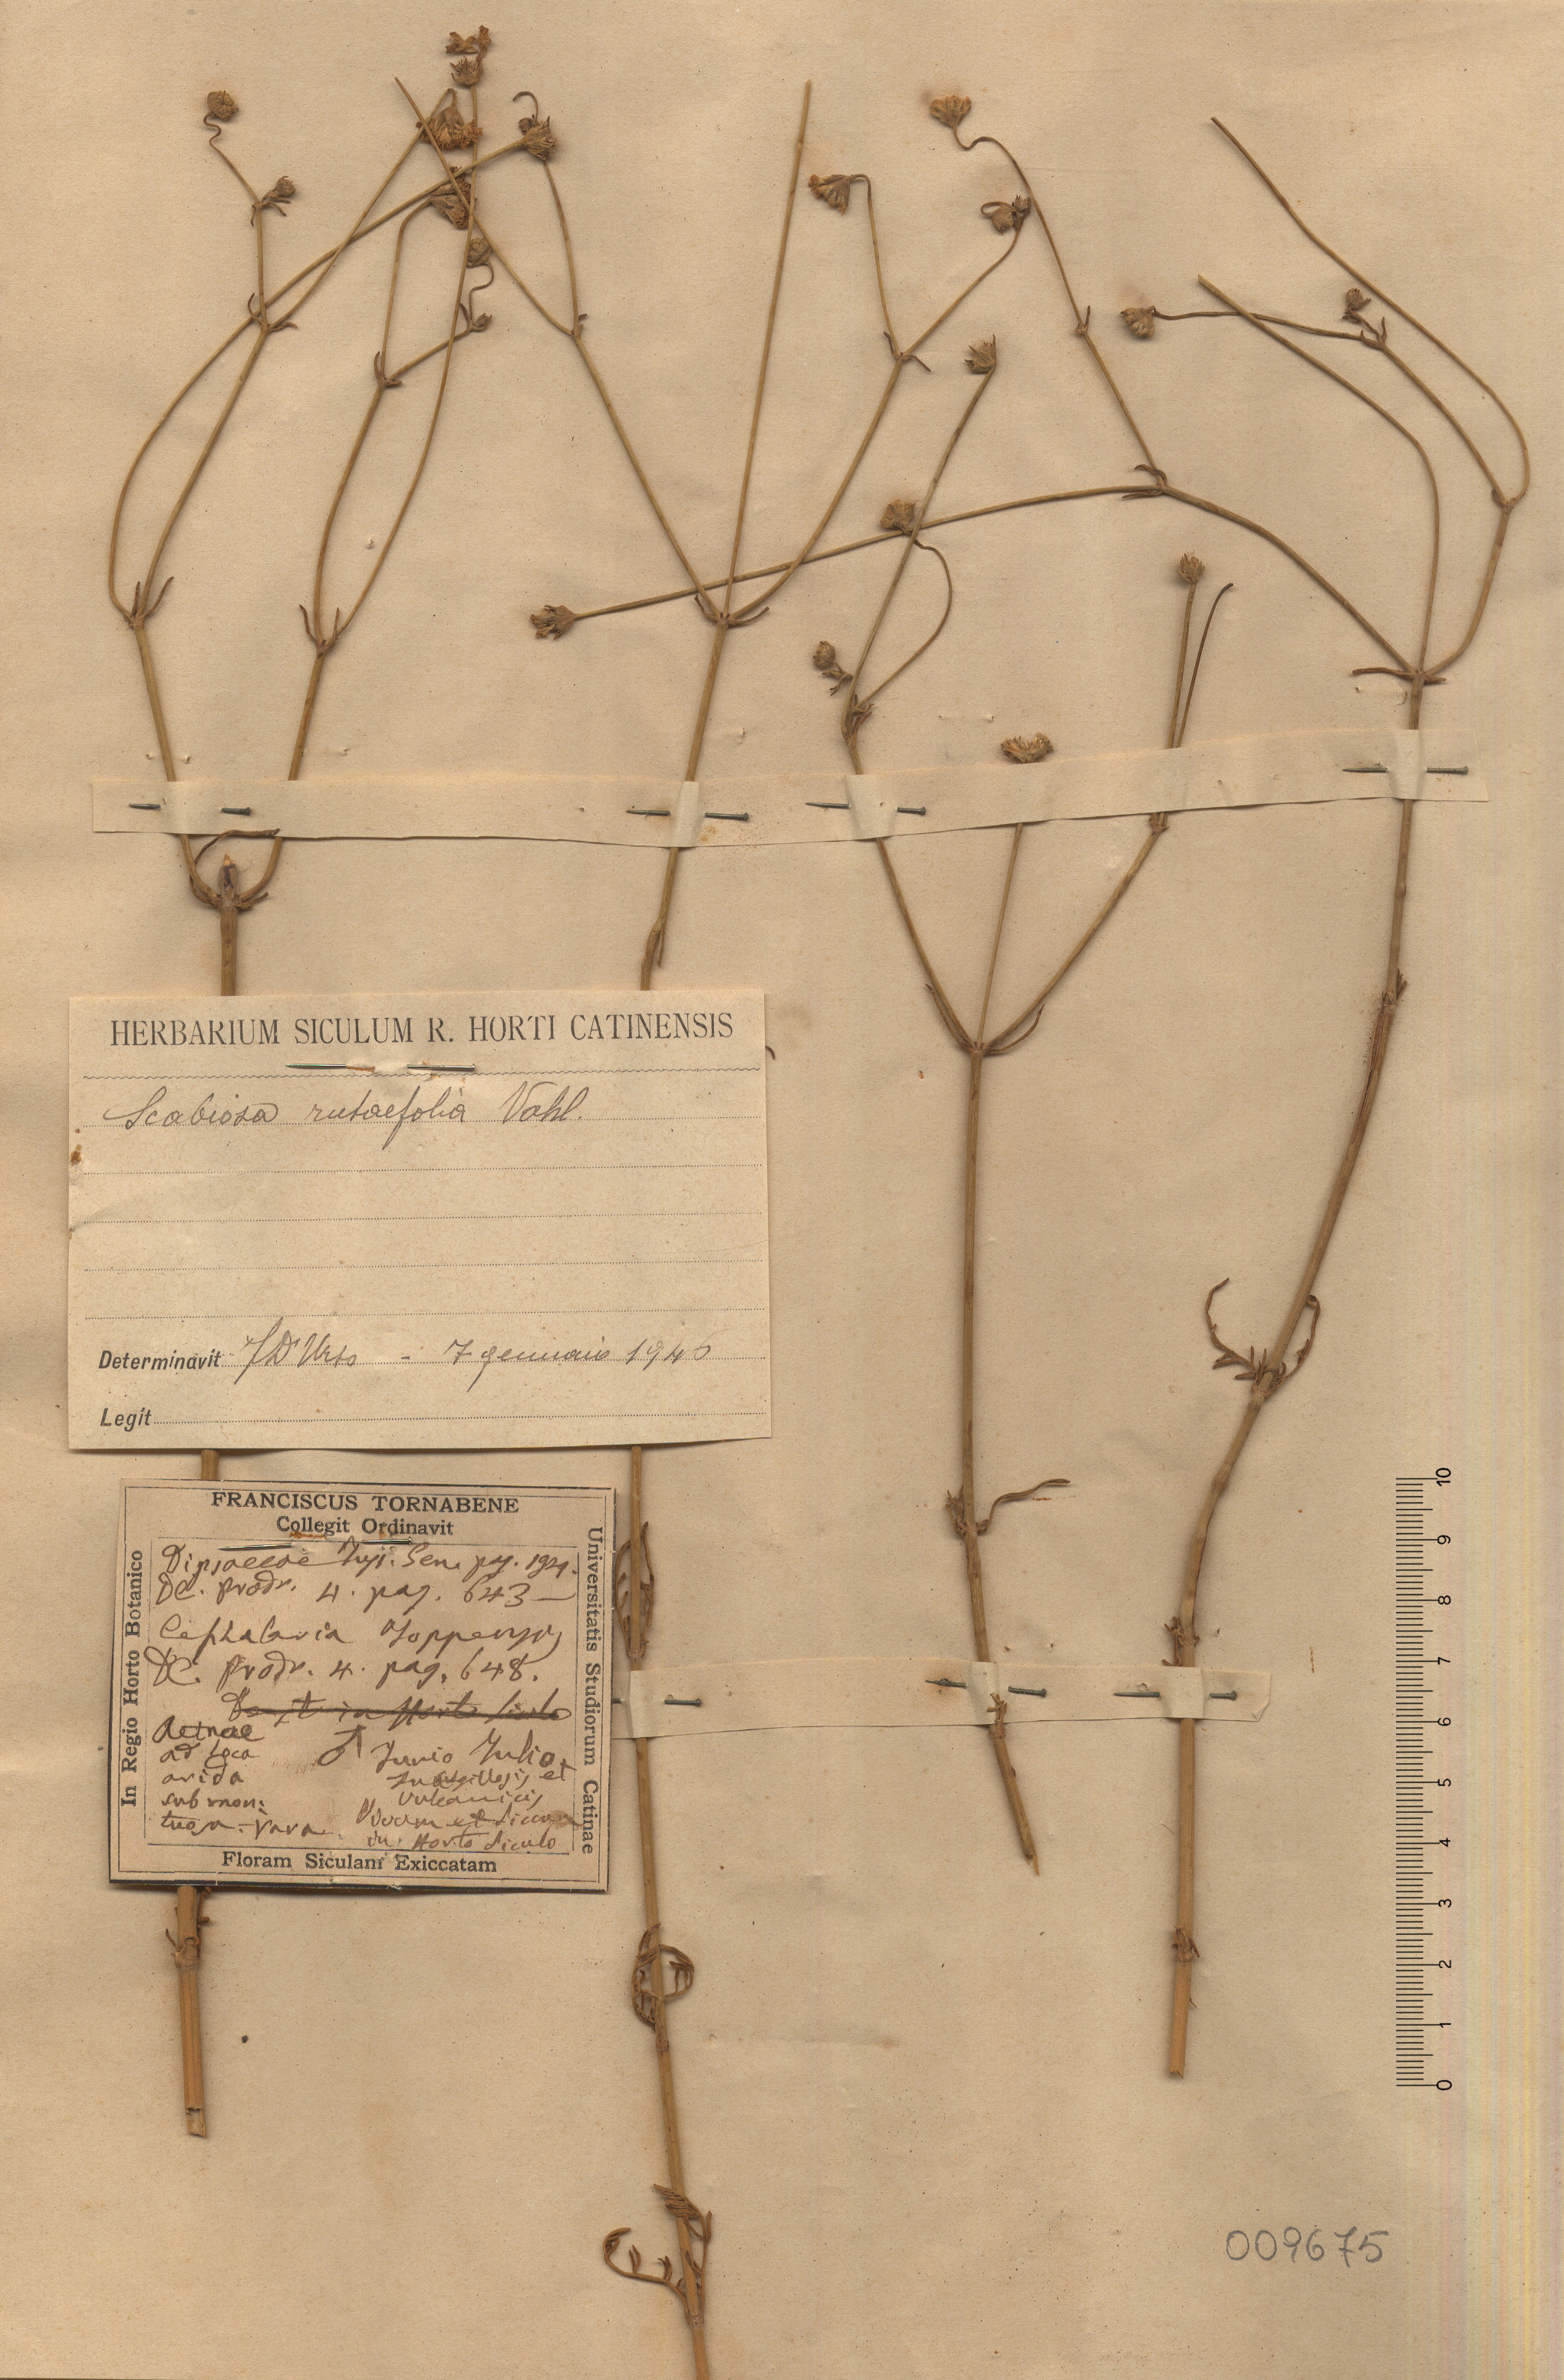 HERBARIUM SICULUM R. HORTI CATINENSIS
Scabiosa rutaefolia Vahl.
Determinavit - 7 gennaio 1946
Legit
FRANCISCUS TORNABENE
Collegit Ordinavit
In Regio Horto Botanico
Universitatis Studiorum Catinae
Dipsaceae Juss. Gen. pag. 194.
DC. Prodr. 4. pag. 643 —
Cephalaria
DC. Prodr. 4. pag. 648.
in Horto Siculo
Aetnae
ad loca
arida
submon:
tuosa - rara
♂ Junio Julio.
et
vulcanicis
Vivam et siccam
in Horto Siculo
Floram Siculam Exiccatam
10
9
8
7
6
5
4
3
2
1
0
009675